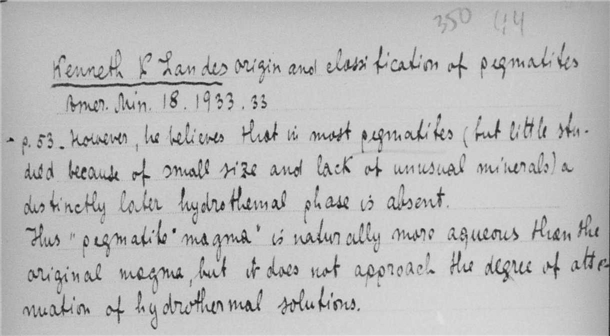 350 44
Kenneth K Landes origin and classification of pegmatites
Amer. Min. 18. 1933. 33
- p. 53 - However, he believes that in most pegmatites (but little stu-
died because of small size and lack of unusual minerals) a
distinctly later hydrothemal phase is absent.
Thus "pegmatite" magma" is naturally more aqueous than the
original magma, but it does not approach the degree of atte-
nuation of hydrothermal solutions.